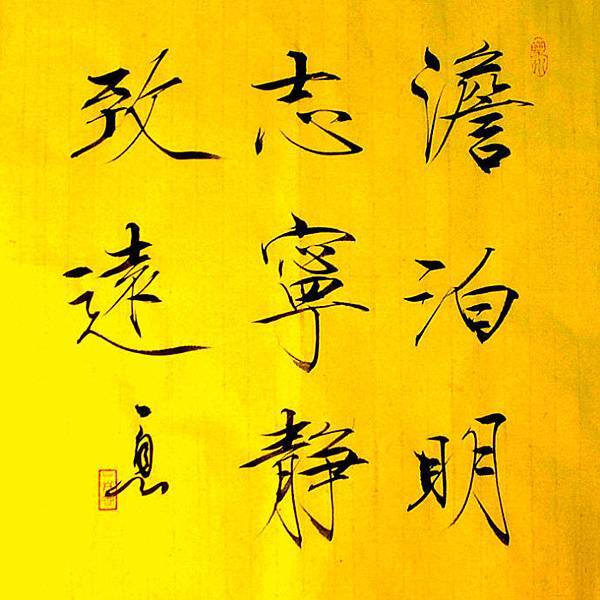 澹泊明
志寧静
致遠